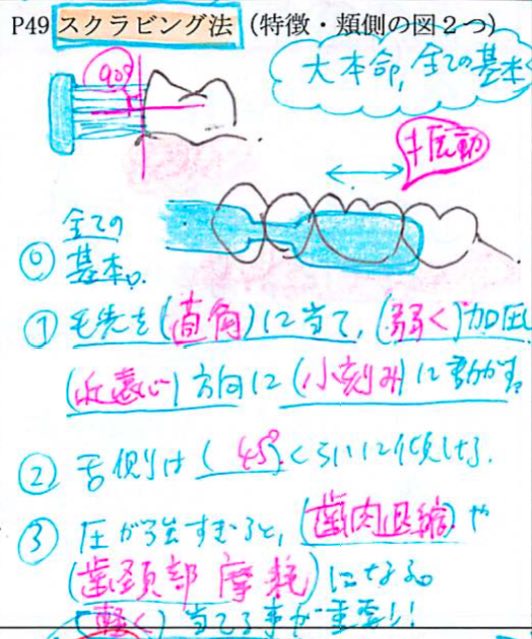 P49 スクラビング法 (特徴・頬側の図2つ)
大本命,全ての基本
90°
全ての
⓪ 基本。
① 毛先を(直角)に当て,(弱く)加圧し
(近遠心)方向に(小刻み)に動かす。
② 舌側は(45°)くらいに傾ける.
③ 圧が強すぎると,(歯肉退縮)や
(歯頚部摩耗)になる。
(軽く)当てる事が重要!!